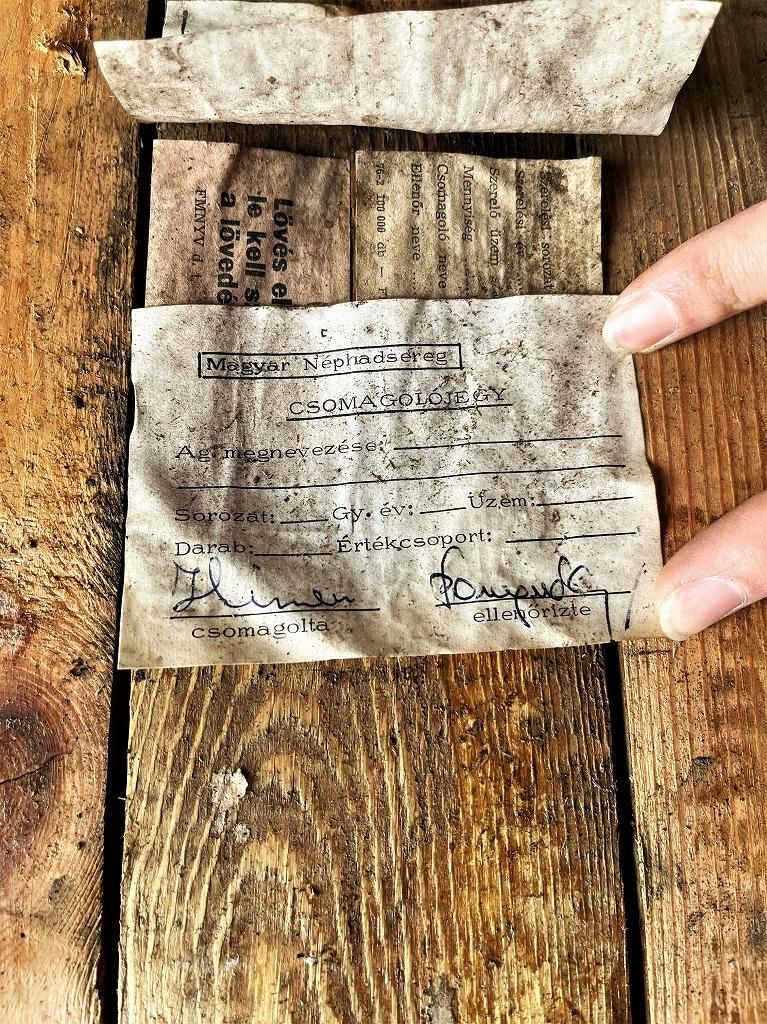 Lövés el
le kell s
a lövedé
FMNYV d. t.
Szerelést sorozat
Szerelési év
Szerelő üzem
Mennyiség
Csomagoló neve
Ellenőr neve
76-2 100 000 db — F
Magyar Néphadsereg
CSOMAGOLÓJEGY
Ag. megnevezése:
Sorozat: Gy. év: Üzem:
Darab: Értékcsoport:
csomagolta ellenőrizte